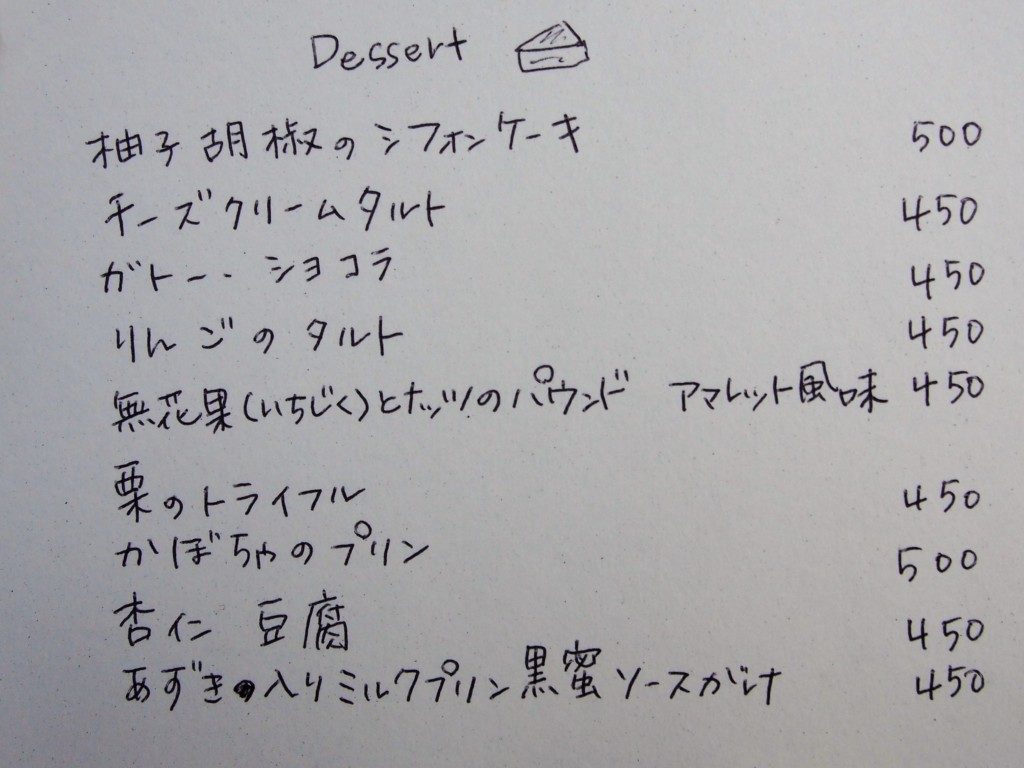 Dessert
柚子胡椒のシフォンケーキ 500
チーズクリームタルト 450
ガトー・ショコラ 450
りんごのタルト 450
無花果(いちじく)とナッツのパウンド アマレット風味 450
栗のトライフル 450
かぼちゃのプリン 500
杏仁豆腐 450
あずき入りミルクプリン黒蜜ソースがけ 450